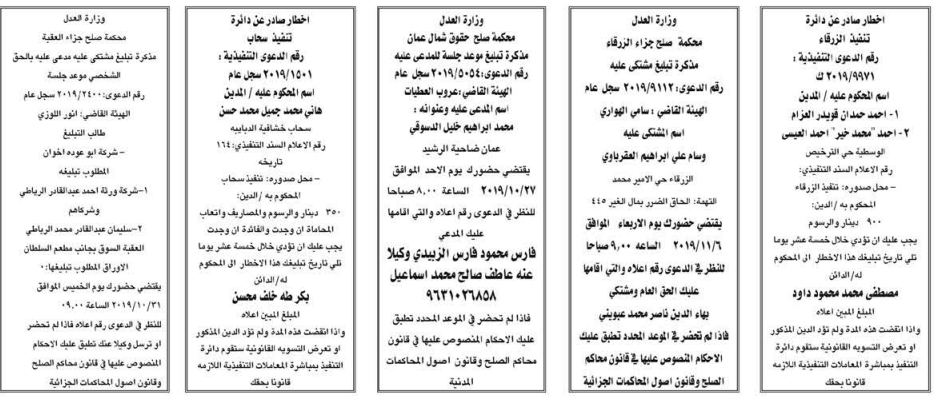 اخطار صادر عن دائرة
تنفيذ الزرقاء
رقم الدعوى التنفيذية :
٢٠١٩/٩٩٧١ ك
اسم المحكوم عليه / المدين
١- احمد حمدان قويدر العزام
٢- احمد "محمد خير" احمد العيسى
الوسطية حي الترخيص
رقم الاعلام السند التنفيذي:
- محل صدوره: تنفيذ الزرقاء
المحكوم به /الدين:
٩٠٠ دينار والرسوم
يجب عليك ان تؤدي خلال خمسة عشر يوما
تلي تاريخ تبليغك هذا الاخطار الى المحكوم
له/الدائن
مصطفى محمد محمود داود
المبلغ المبين اعلاه
واذا انقضت هذه المدة ولم تؤد الدين المذكور
او تعرض التسويه القانونية ستقوم دائرة
التنفيذ بمباشرة المعاملات التنفيذية اللازمه
قانونا بحقك
وزارة العدل
محكمة صلح جزاء الزرقاء
مذكرة تبليغ مشتكى عليه
رقم الدعوى: ٢٠١٩/٩١١٢ سجل عام
الهيئة القاضي : سامي الهواري
اسم المشتكى عليه
وسام علي ابراهيم العقرباوي
الزرقاء حي الامير محمد
التهمة: الحاق الضرر بمال الغير ٤٤٥
يقتضي حضورك يوم الاربعاء الموافق
٢٠١٩/١١/٦ الساعه ٩,٠٠ صباحا
للنظر في الدعوى رقم اعلاه والتي اقامها
عليك الحق العام ومشتكي
بهاء الدين ناصر محمد عبويني
فاذا لم تحضر في الموعد المحدد تطبق عليك
الاحكام المنصوص عليها في قانون محاكم
الصلح وقانون اصول المحاكمات الجزائية
وزارة العدل
محكمة صلح حقوق شمال عمان
مذكرة تبليغ موعد جلسة للمدعى عليه
رقم الدعوى:٢٠١٩/٥٠٥٤ سجل عام
الهيئة القاضي:عروب العطيات
اسم المدعى عليه وعنوانه :
محمد ابراهيم خليل الدسوقي
عمان ضاحية الرشيد
يقتضي حضورك يوم الاحد الموافق
٢٠١٩/١٠/٢٧ الساعة ٨,٠٠ صباحا
للنظر في الدعوى رقم اعلاه والتي اقامها
عليك المدعي
فارس محمود فارس الزبيدي وكيلا
عنه عاطف صالح محمد اسماعيل
٩٦٣١٠٢٦٨٥٨
فاذا لم تحضر في الموعد المحدد تطبق
عليك الاحكام المنصوص عليها في قانون
محاكم الصلح وقانون اصول المحاكمات
المدنية
اخطار صادر عن دائرة
تنفيذ سحاب
رقم الدعوى التنفيذية :
٢٠١٩/١٥٠١ سجل عام
اسم المحكوم عليه / المدين
هاني محمد جميل محمد حسن
سحاب خشافية الدبايبه
رقم الاعلام السند التنفيذي: ١٦٤
تاريخه
- محل صدوره: تنفيذ سحاب
المحكوم به /الدين:
٣٥٠ دينار والرسوم والمصاريف واتعاب
المحاماة ان وجدت والفائدة ان وجدت
يجب عليك ان تؤدي خلال خمسة عشر يوما
تلي تاريخ تبليغك هذا الاخطار الى المحكوم
له/الدائن
بكر طه خلف محسن
المبلغ المبين اعلاه
واذا انقضت هذه المدة ولم تؤد الدين المذكور
او تعرض التسويه القانونية ستقوم دائرة
التنفيذ بمباشرة المعاملات التنفيذية اللازمه
قانونا بحقك
وزارة العدل
محكمة صلح جزاء العقبة
مذكرة تبليغ مشتكى عليه مدعى عليه بالحق
الشخصي موعد جلسة
رقم الدعوى: ٢٠١٩/٢٤٠٠ سجل عام
الهيئة القاضي: انور اللوزي
طالب التبليغ
- شركة ابو عوده اخوان
المطلوب تبليغه
١-شركة ورثة احمد عبدالقادر الرياطي
وشركاهم
٢-سليمان عبدالقادر محمد الرياطي
العقبة السوق بجانب مطعم السلطان
الاوراق المطلوب تبليغها:٠
يقتضي حضورك يوم الخميس الموافق
٢٠١٩/١٠/٣١ الساعة ٠٩,٠٠
للنظر في الدعوى رقم اعلاه فاذا لم تحضر
او ترسل وكيلا عنك تطبق عليك الاحكام
المنصوص عليها في قانون محاكم الصلح
وقانون اصول المحاكمات الجزائية